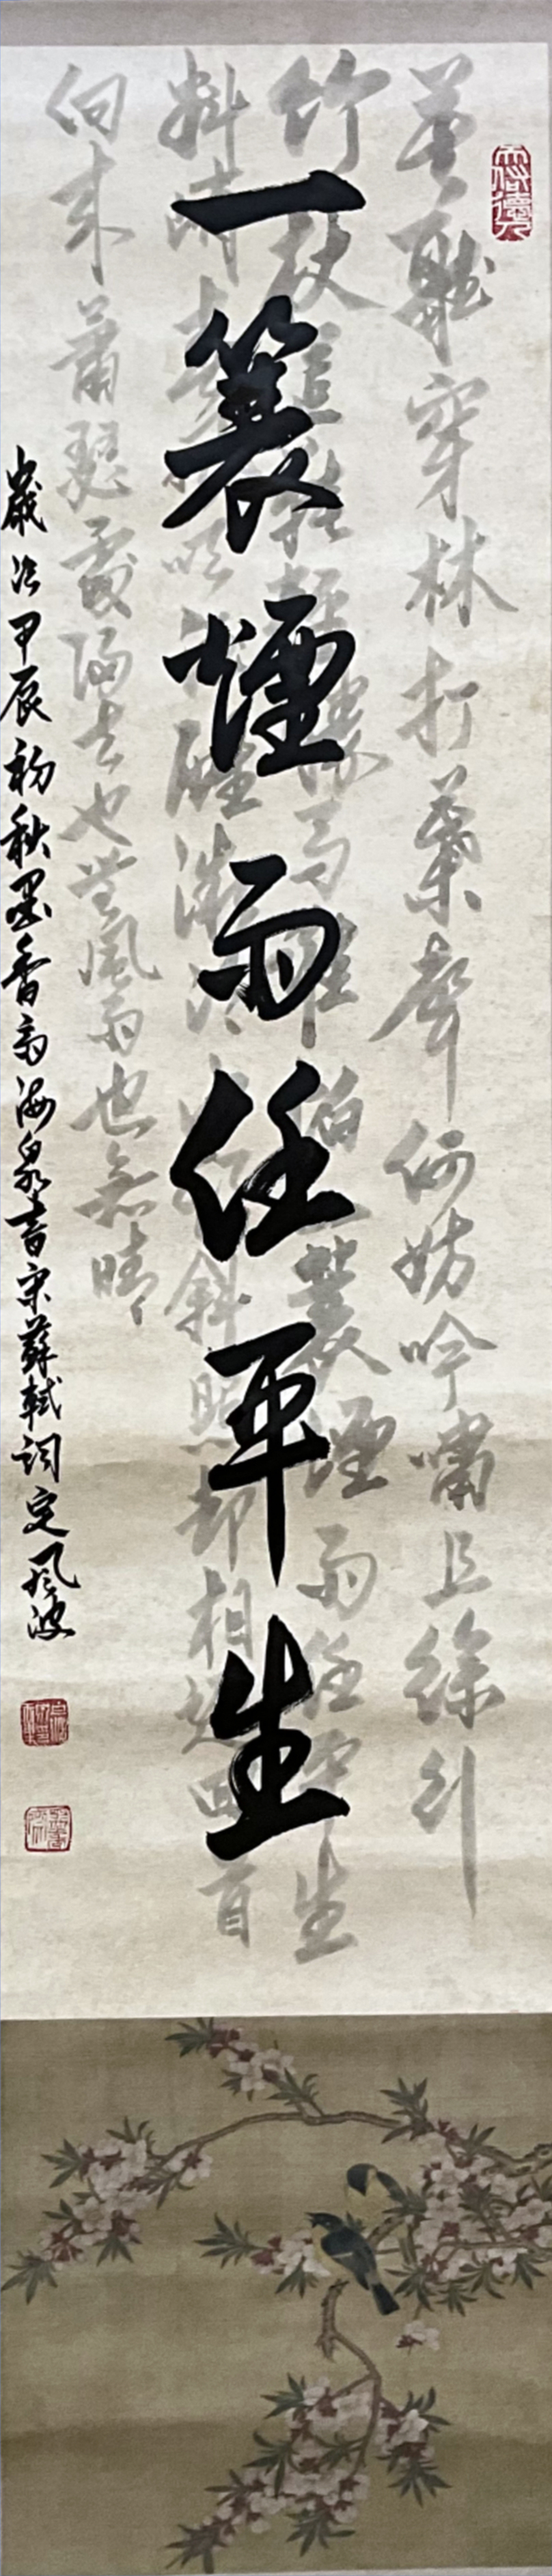 莫聽穿林打葉聲何妨吟嘯且徐行
竹杖芒鞋輕勝馬誰怕一蓑煙雨任平生
料峭春風吹酒醒微冷山頭斜照却相迎回首
向来蕭瑟處歸去也無風雨也無晴
一蓑煙雨任平生
歲次甲辰初秋墨香齋海泉書宋蘇軾詞定風波